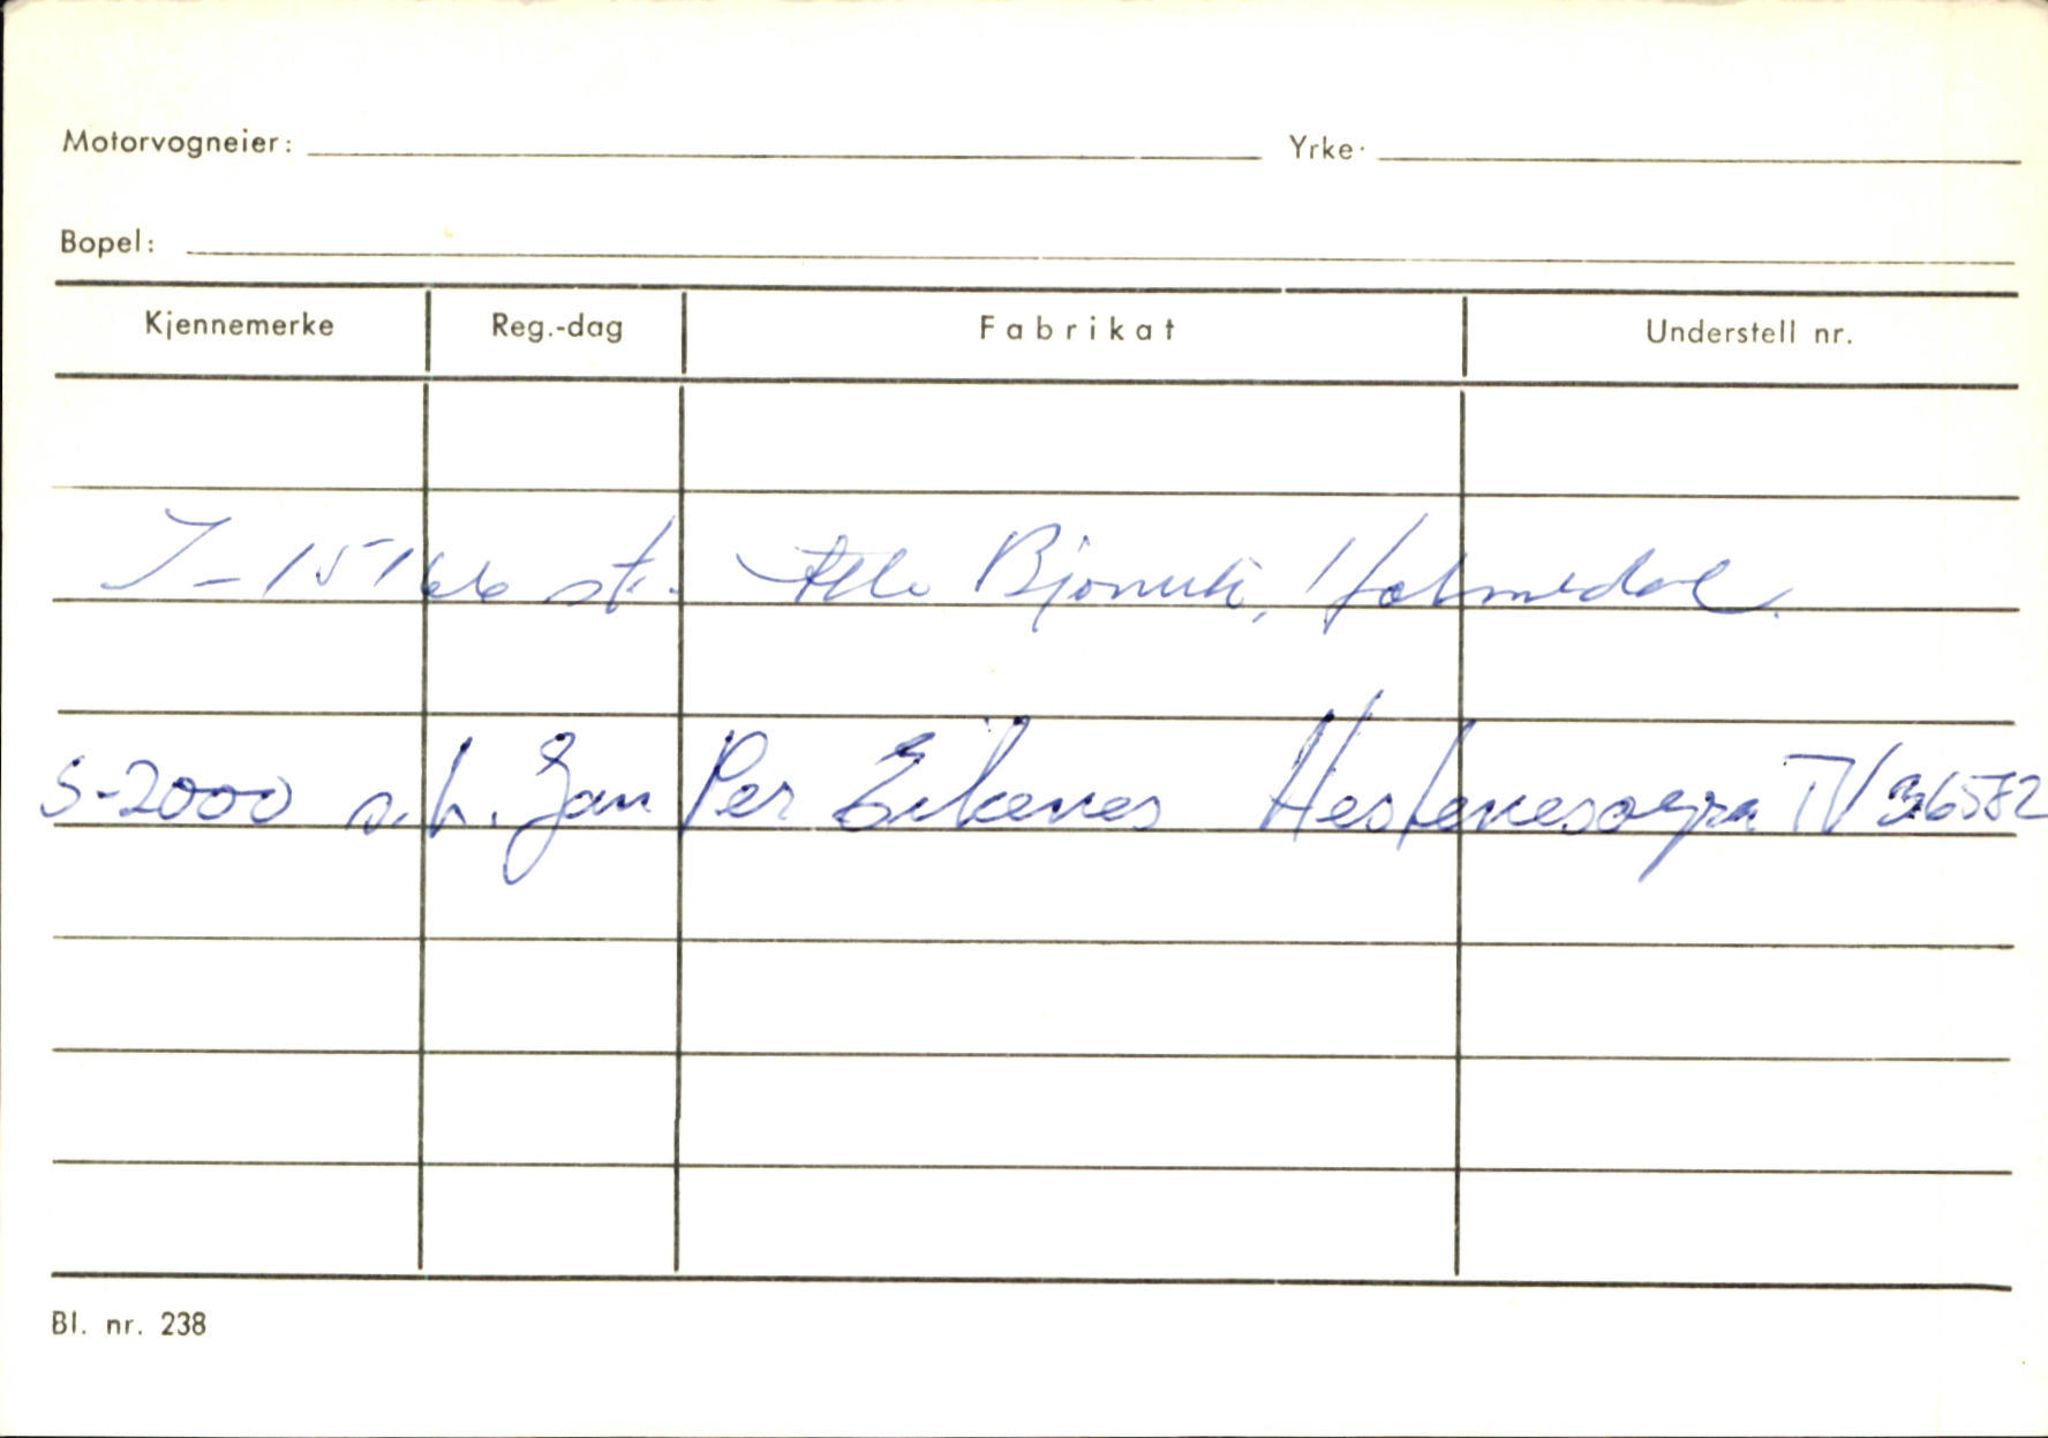 Motorvogneier: Yrke.
Bopel:
Kjennemerke Reg.-dag Fabrikat Understell nr.
S-15166 st. Atle Holmedal.
S-2000 s.h. Jan Per Eikenes Hestenesøyra TV 36582
Bl. nr. 238